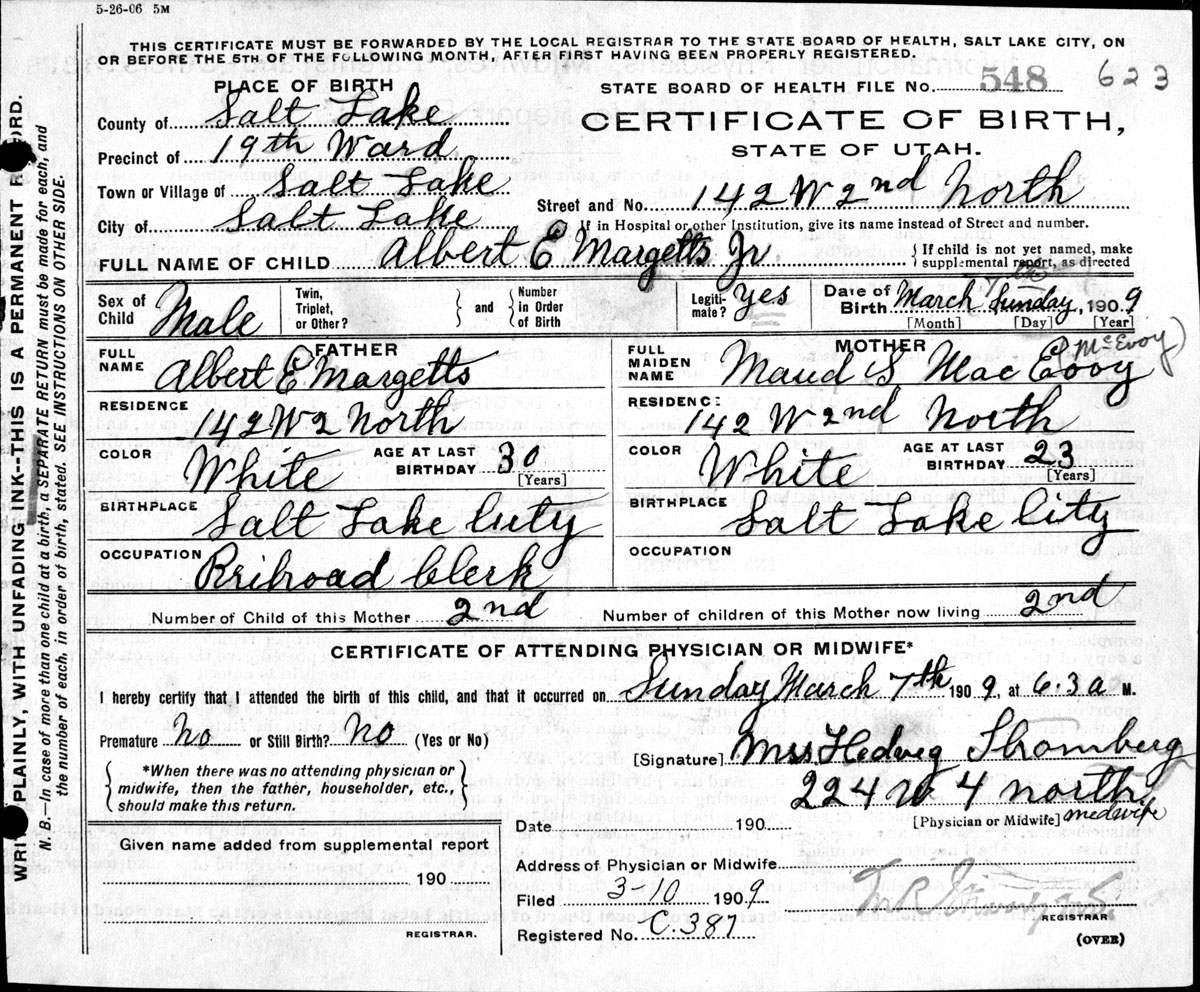 5-26-06 5M
THIS CERTIFICATE MUST BE FORWARDED BY THE LOCAL REGISTRAR TO THE STATE BOARD OF HEALTH, SALT LAKE CITY, ON
OR BEFORE THE 5TH OF THE FOLLOWING MONTH, AFTER FIRST HAVING BEEN PROPERLY REGISTERED.
PLACE OF BIRTH
STATE BOARD OF HEALTH FILE NO. 548 623
County of Salt Lake
CERTIFICATE OF BIRTH,
STATE OF UTAH.
Precinct of 19th Ward
Town or Village of Salt Lake
Street and No. 142 W 2nd North
City of Salt Lake
If in Hospital or other Institution, give its name instead of Street and number.
FULL NAME OF CHILD Albert E Margetts Jr
If child is not yet named, make
supplemental report, as directed
Sex of Child Male
Twin, Triplet, or Other?
and
Number in Order of Birth
Legiti-mate? yes
Date of Birth March 7th Sunday, 1909
[Month] [Day] [Year]
FATHER
FULL NAME Albert E. Margetts
RESIDENCE 142 W 2 North
COLOR White AGE AT LAST BIRTHDAY 30 [Years]
BIRTHPLACE Salt Lake City
OCCUPATION Railroad Clerk
MOTHER
FULL MAIDEN NAME Maud S Mac Evoy (McEvoy)
RESIDENCE 142 W 2nd North
COLOR White AGE AT LAST BIRTHDAY 23 [Years]
BIRTHPLACE Salt Lake City
OCCUPATION
Number of Child of this Mother 2nd Number of children of this Mother now living 2nd
CERTIFICATE OF ATTENDING PHYSICIAN OR MIDWIFE*
I hereby certify that I attended the birth of this child, and that it occurred on Sunday March 7th 1909, at 6.3 a M.
Premature No or Still Birth? No (Yes or No)
[Signature] Mrs Hedvig Thomberg
224 W 4 North
[Physician or Midwife] medwife
*When there was no attending physician or
midwife, then the father, householder, etc.,
should make this return.
Given name added from supplemental report
190
REGISTRAR.
Date 190
Address of Physician or Midwife
Filed 3-10 1909
REGISTRAR
Registered No. C.387
(OVER)
WRITE PLAINLY, WITH UNFADING INK--THIS IS A PERMANENT RECORD.
N. B.—In case of more than one child at a birth, a SEPARATE RETURN must be made for each, and
the number of each, in order of birth, stated. SEE INSTRUCTIONS ON OTHER SIDE.